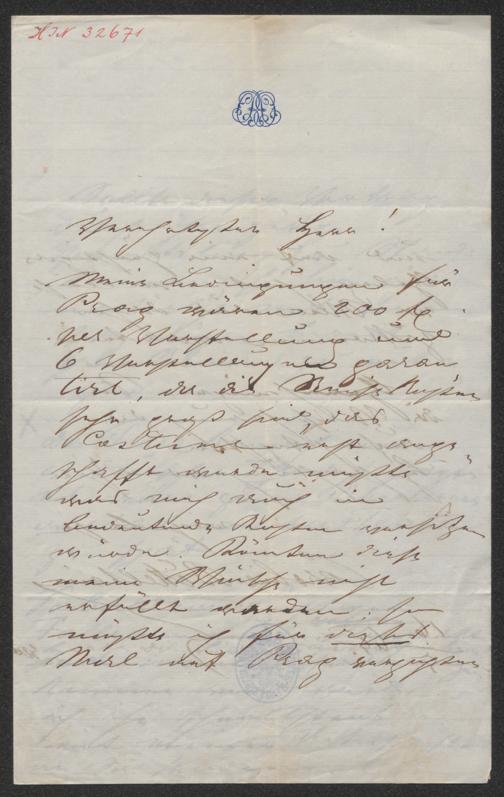 HIN 32671
Verehrtester Herr!
Meine Bedingungen für
Prag wären 200 fl.
per Vorstellung und
6 Vorstellungen garan
tirt, da die Reise Kosten
sehr groß sind, das
Costume erst ange„
schafft werden müßte
was mich auch in
bedeutende Kosten versetzen
würde. Könnten diese
meine Wünsche nicht
erfüllt werden, so
müßte ich für dießes
Mal auf Prag verzichten